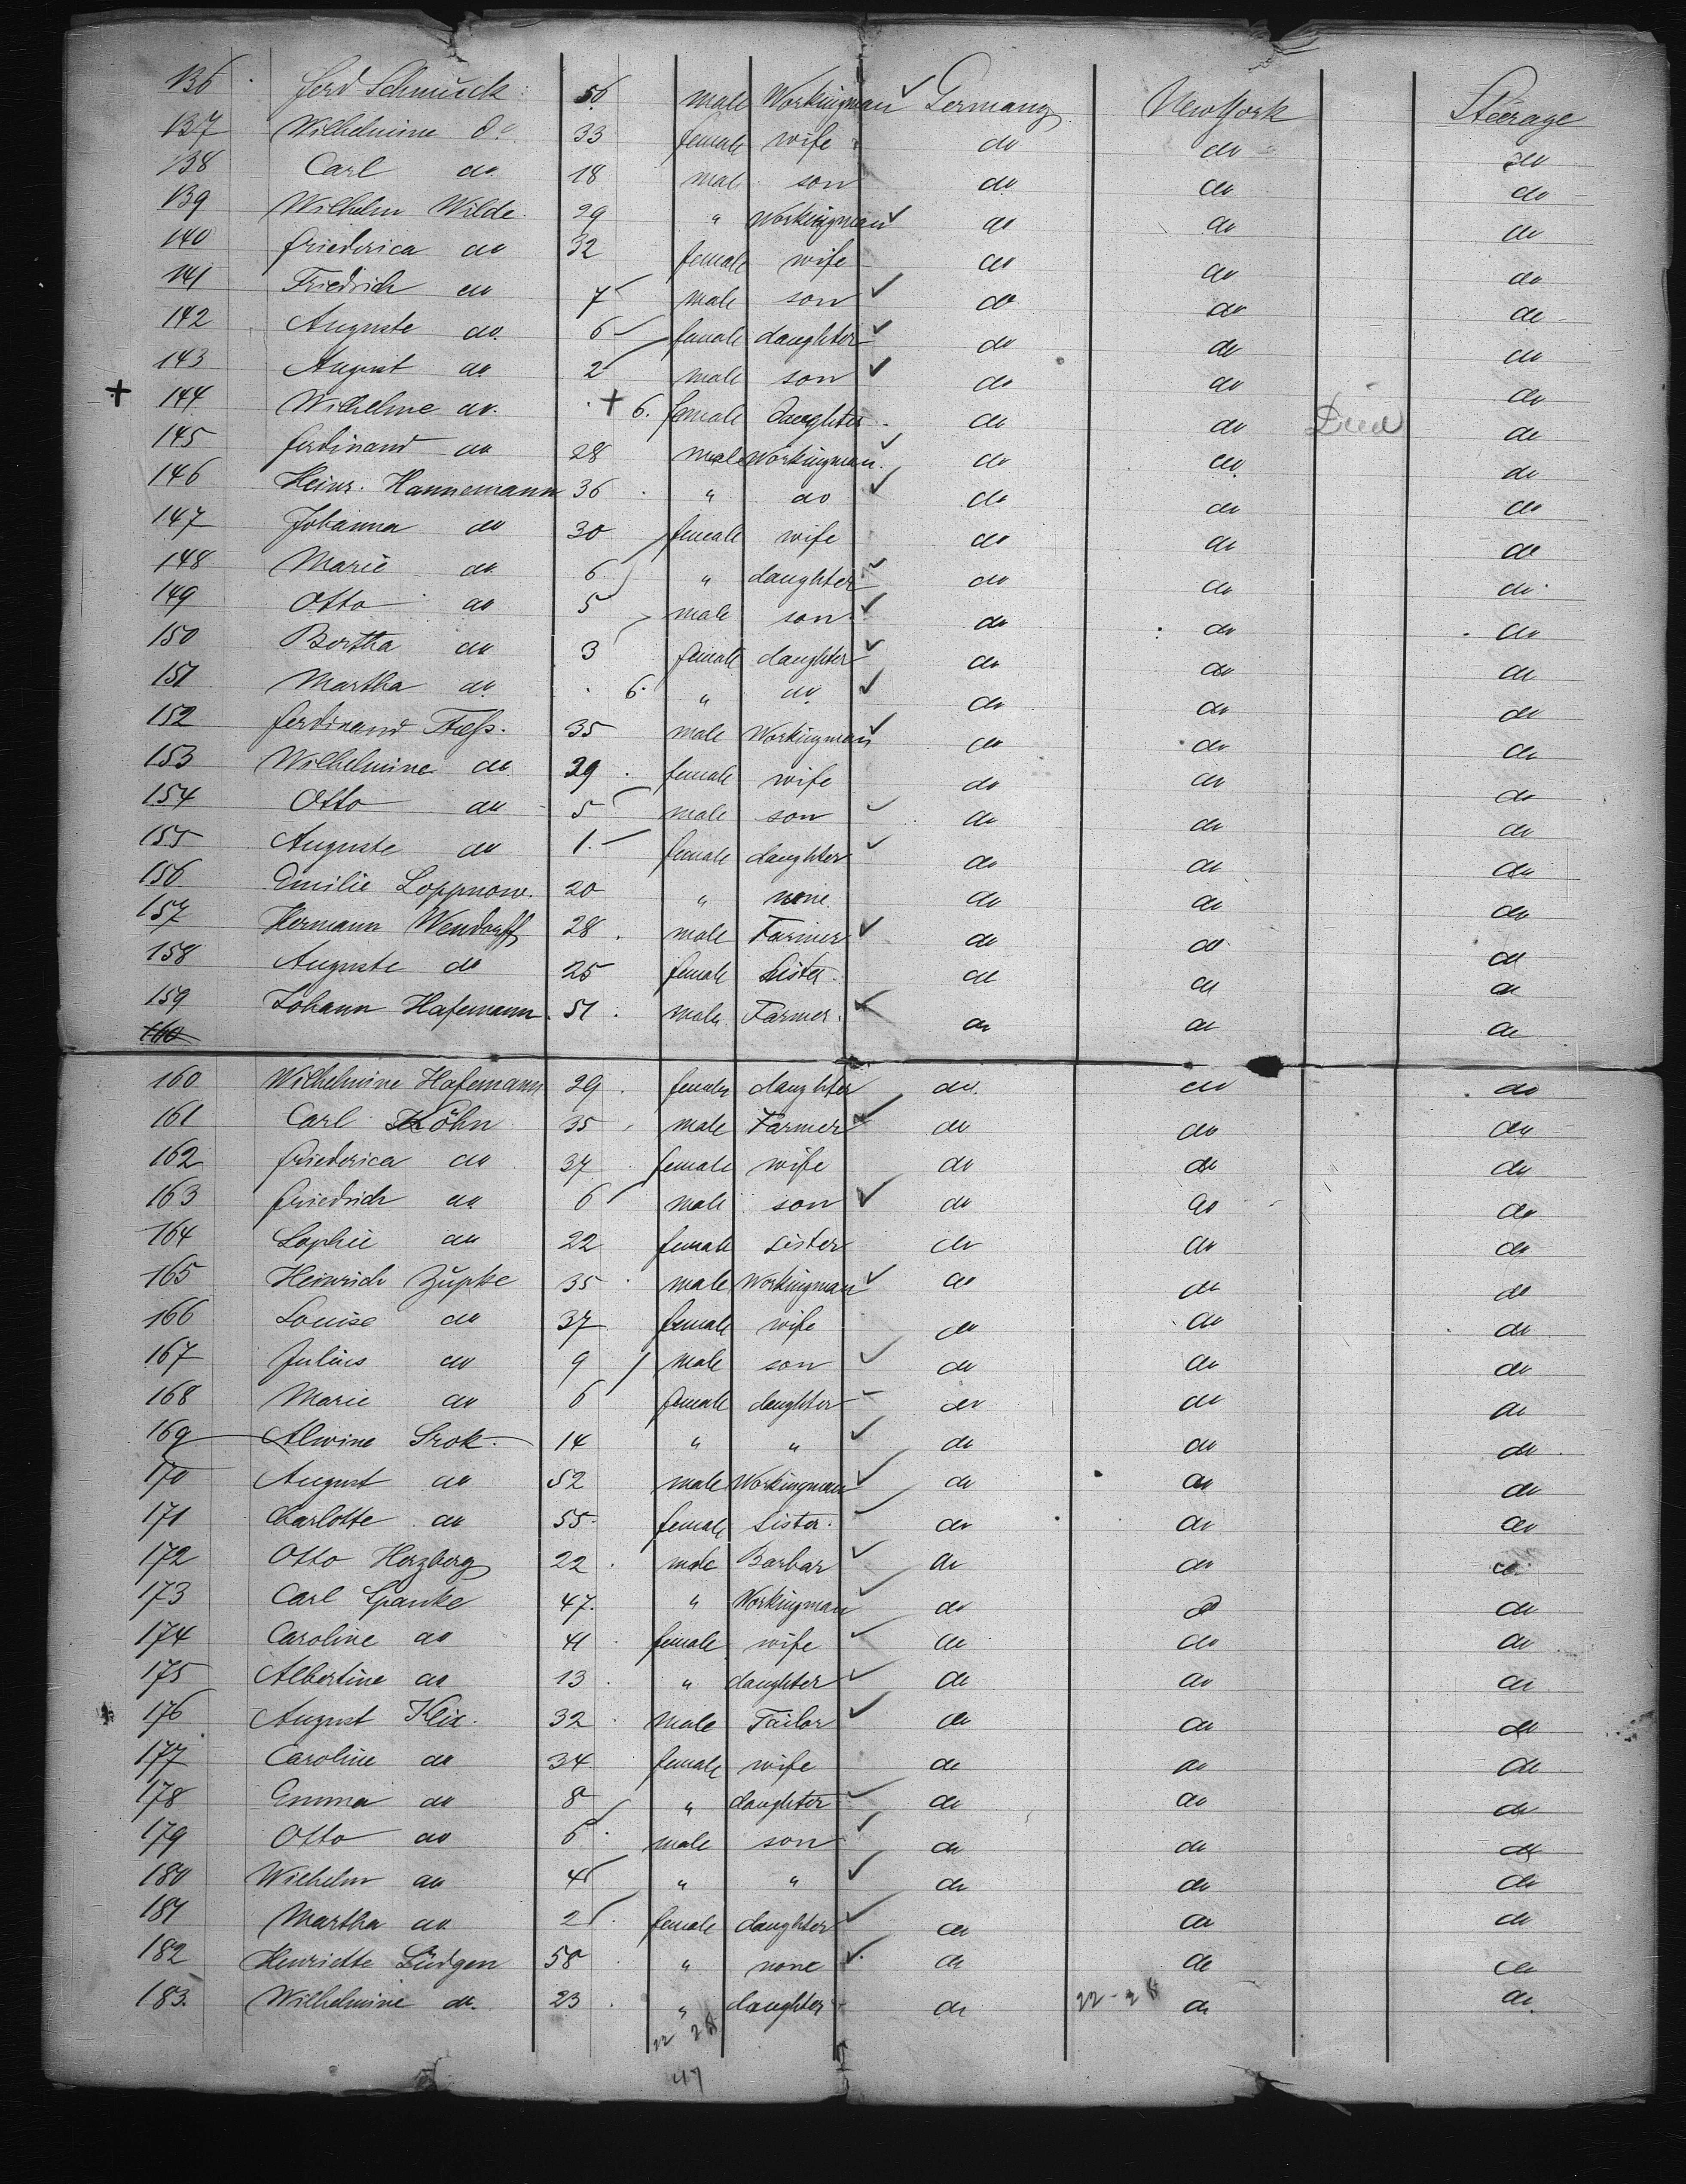 136 Ferd Schmuck 56 male Workingman ✓ Germany New York Steerage
137 Wilhelmine do 33 female wife do do do
138 Carl do 18 male son do do do
139 Wilhelm Wilde 29 " Workingman ✓ do do do
140 Friederica do 32 female wife do do do
141 Friedrich do 7 male son ✓ do do do
142 Auguste do. 6 female daughter ✓ do do do
143 August do 2 male son ✓ do do do
+ 144 Wilhelme do. + 6. female daughter do do Died do
145 Ferdinand do 28 male Workingman ✓ do do do
146 Heinr. Hannemann 36 " do ✓ do do do
147 Johanna do 30 female wife do do do
148 Marie do 6 " daughter ✓ do do do
149 Otto do 5 male son ✓ do do do
150 Bertha do 3 female daughter ✓ do do do
151 Martha do 6. " do ✓ do do do
152 Ferdinand 35 male Workingman ✓ do do do
153 Wilhelmine do 29 female wife do do do
154 Otto do 5 male son ✓ do do do
155 Auguste do 1. female daughter ✓ do do do
156 Emilie Loppnow. 20 " none do do do
157 Hermann Wendorff 28 male Farmer ✓ do do do
158 Auguste do 25 female Sister do do do
159 Johann Hafemann. 51 male Farmer ✓ do do do
160
160 Wilhelmine Hafemann 29 female daughter do. do do
161 Carl Köhn 35 male Farmer ✓ do do do
162 Friederica do 37 female wife do do do
163 Friedrich do 6 male son ✓ do do do
164 Sophie do 22 female sister do do do
165 Heinrich Zupke 35 male Workingman ✓ do do do
166 Louise do 37 female wife do do do
167 Julius do 9 male son ✓ do do do
168 Marie do 6 female daughter do do do
169 Alwine Srok 14 " " ✓ do do do
170 August do 52 male Workingman ✓ do do do
171 Charlotte do 55 female Sister ✓ do do do
172 Otto Herzberg 22 male Barbar ✓ do do do
173 Carl Ganke 47. " Workingman ✓ do do do
174 Caroline do 41 female wife ✓ do do do
175 Albertine do 13 " daughter ✓ do do do
176 August Klix. 32 male Tailor ✓ do do do
177 Caroline do 34 female wife do do do
178 Emma do 8 " daughter ✓ do do do
179 Otto do 6 male son ✓ do do do
180 Wilhelm do 4 " " ✓ do do do
181 Martha do 2 female daughter ✓ do do do
182 Henriette Lüdgen 58 " none ✓ do do do
183. Wilhelmine do. 23 " daughter do do do